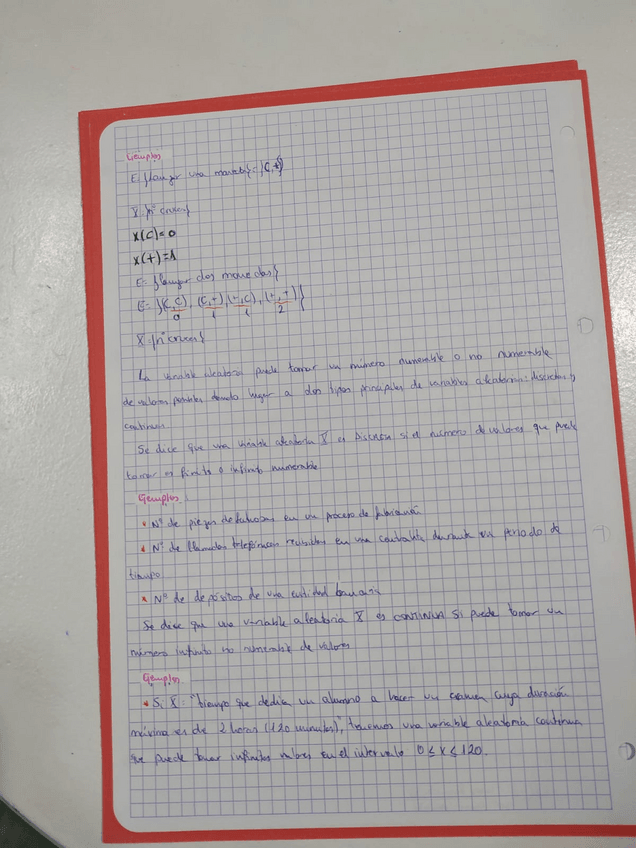 Ejemplos
E: {lanzar una moneda} = {C,+}
X: {nº cruces}
X(C)=0
X(+)=1
E= {lanzar dos monedas}
E= {(C,C), (C,+), (+,C), (+,+)}
0 1 1 2
X: {nº cruces}
La variable aleatoria puede tomar un número numerable o no numerable
de valores posibles dando lugar a dos tipos principales de variables aleatorias: discretas y
continuas
Se dice que una variable aleatoria X es DISCRETA si el número de valores que puede
tomar es finito o infinito numerable
Ejemplos
• Nº de piezas defectuosas en un proceso de fabricación
• Nº de llamadas telefónicas recibidas en una centralita durante un periodo de
tiempo
• Nº de depósitos de una entidad bancaria
Se dice que una variable aleatoria X es CONTINUA si puede tomar un
número infinito no numerable de valores
Ejemplos
• Si X: "tiempo que dedica un alumno a hacer un examen cuya duración
máxima es de 2 horas (120 minutos)", tenemos una variable aleatoria continua
que puede tomar infinitos valores en el intervalo 0 ≤ x ≤ 120.